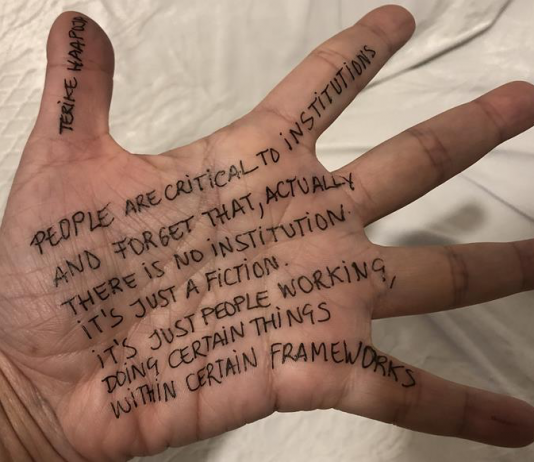 TERIKE HAAPOJA
PEOPLE ARE CRITICAL TO INSTITUTIONS
AND FORGET THAT, ACTUALLY
THERE IS NO INSTITUTION.
IT'S JUST A FICTION.
IT'S JUST PEOPLE WORKING,
DOING CERTAIN THINGS
WITHIN CERTAIN FRAMEWORKS